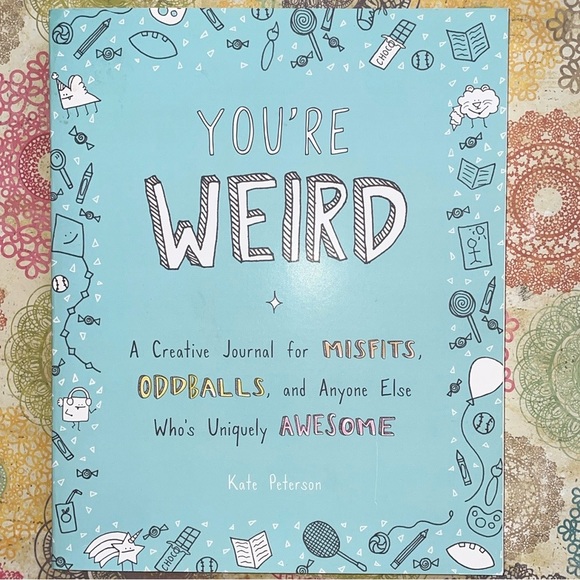 CHOCO
YOU'RE
WEIRD
A Creative Journal for MISFITS,
ODDBALLS, and Anyone Else
Who's Uniquely AWESOME
Kate Peterson
CHOCO